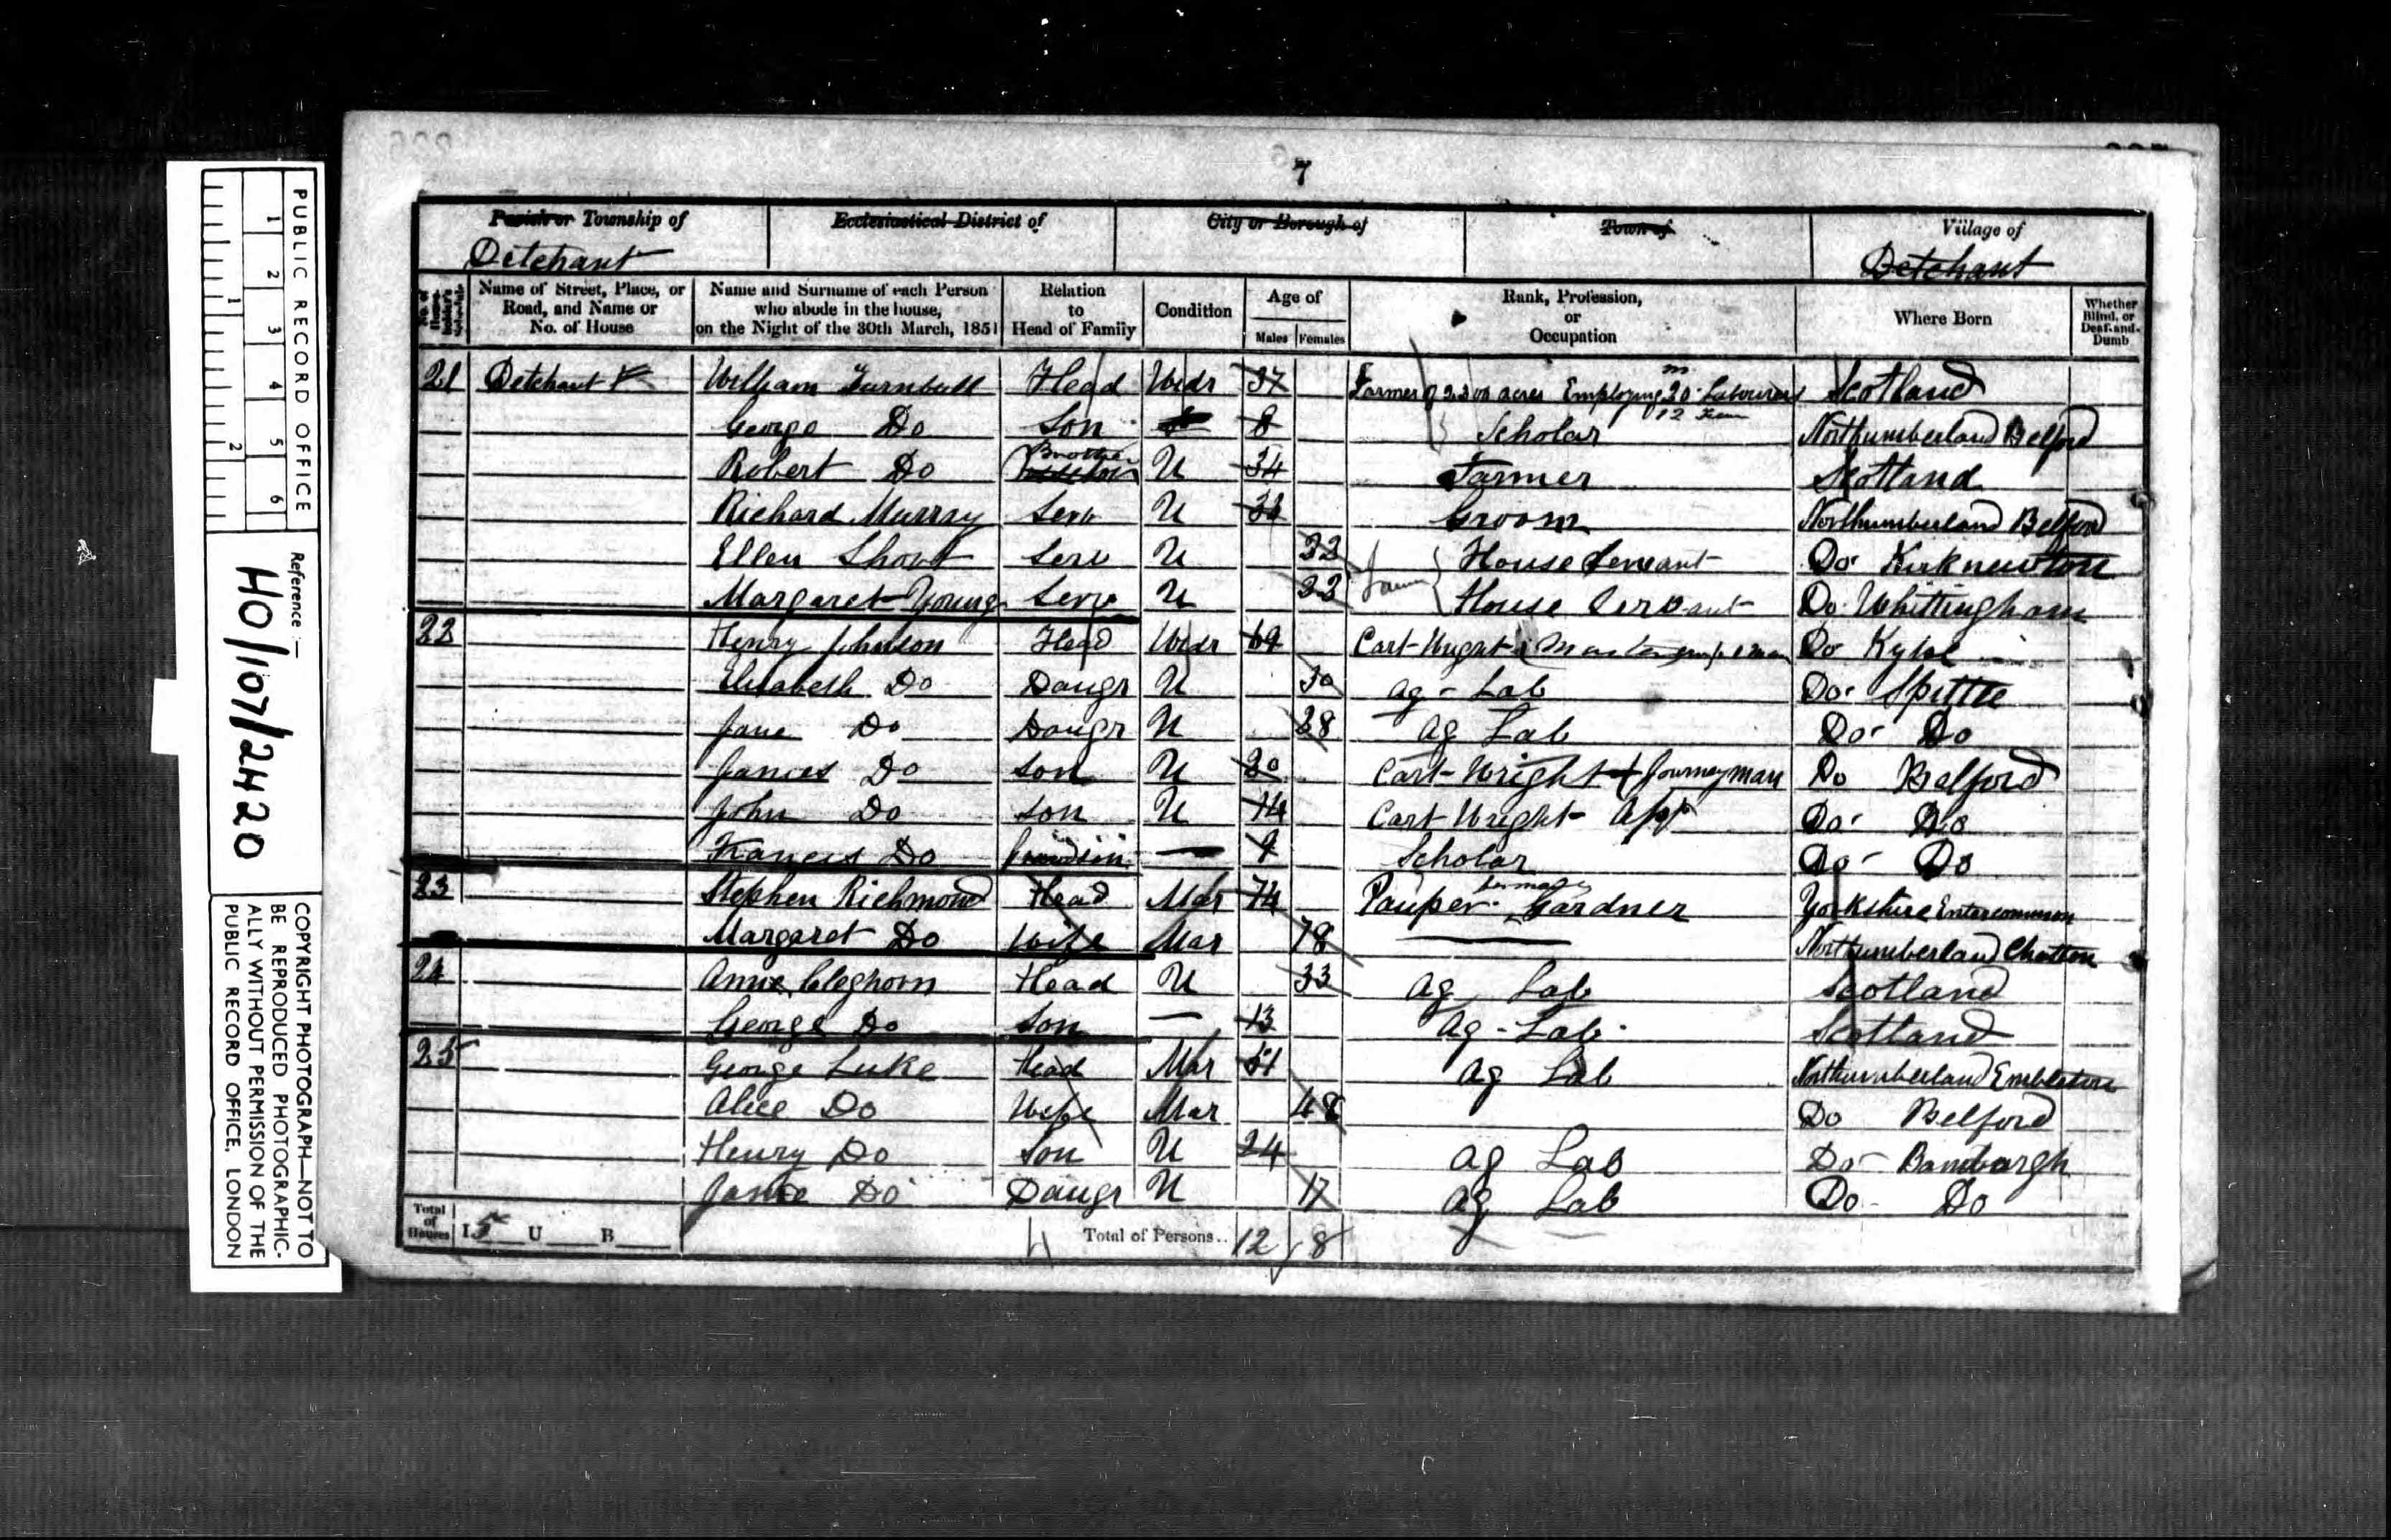 7
Parish or Township of Ecclesiastical District of City or Borough of Town of Village of
Detchant Detchant
No. of House-holder's Schedule Name of Street, Place, or Road, and Name or No. of House Name and Surname of each Person who abode in the house, on the Night of the 30th March, 1851 Relation to Head of Family Condition Age of Males Females Rank, Profession, or Occupation Where Born Whether Blind, or Deaf-and-Dumb
21 Detchant William Turnbull Head Widr 37 Farmer of acres Employing Labourers Scotland
George Do Son 8 Scholar Northumberland Belford
Robert Do Brother U 34 Farmer Scotland
Richard Murray Serv U Groom Northumberland Belford
Ellen Short Serv U 22 House Servant Do Kirknewton
Margaret Young Serv U 22 House Servant Do Whittingham
22 Henry Johnson Head Widr 69 Cart-Wright Master emp 1 man Do Kyloe
Elisabeth Do Daugr U 30 Ag - Lab Do Spittle
Jane Do Daugr U 28 Ag Lab Do Do
James Do Son U 20 Cart-Wright Journeyman Do Belford
John Do Son U 14 Cart Wright App Do Do
Francis Do Grandson — 9 Scholar Do Do
23 Stephen Richmond Head Mar 74 Pauper formerly Gardner Yorkshire
Margaret Do Wife Mar 78 Northumberland Chatton
24 Anne Cleghorn Head U 33 Ag Lab Scotland
George Do Son — 13 Ag - Lab Scotland
25 George Luke Head Mar 51 Ag Lab Northumberland Embleton
Alice Do Wife Mar 48 Do Belford
Henry Do Son U 24 Ag Lab Do Bamburgh
Jane Do Daugr U 17 Ag Lab Do Do
Total of Houses I 5 U B Total of Persons.. 12 8
PUBLIC RECORD OFFICE
1 2 3 4 5 6
1 2
Reference:—
HO/107/2420
COPYRIGHT PHOTOGRAPH—NOT TO
BE REPRODUCED PHOTOGRAPHIC-
ALLY WITHOUT PERMISSION OF THE
PUBLIC RECORD OFFICE, LONDON